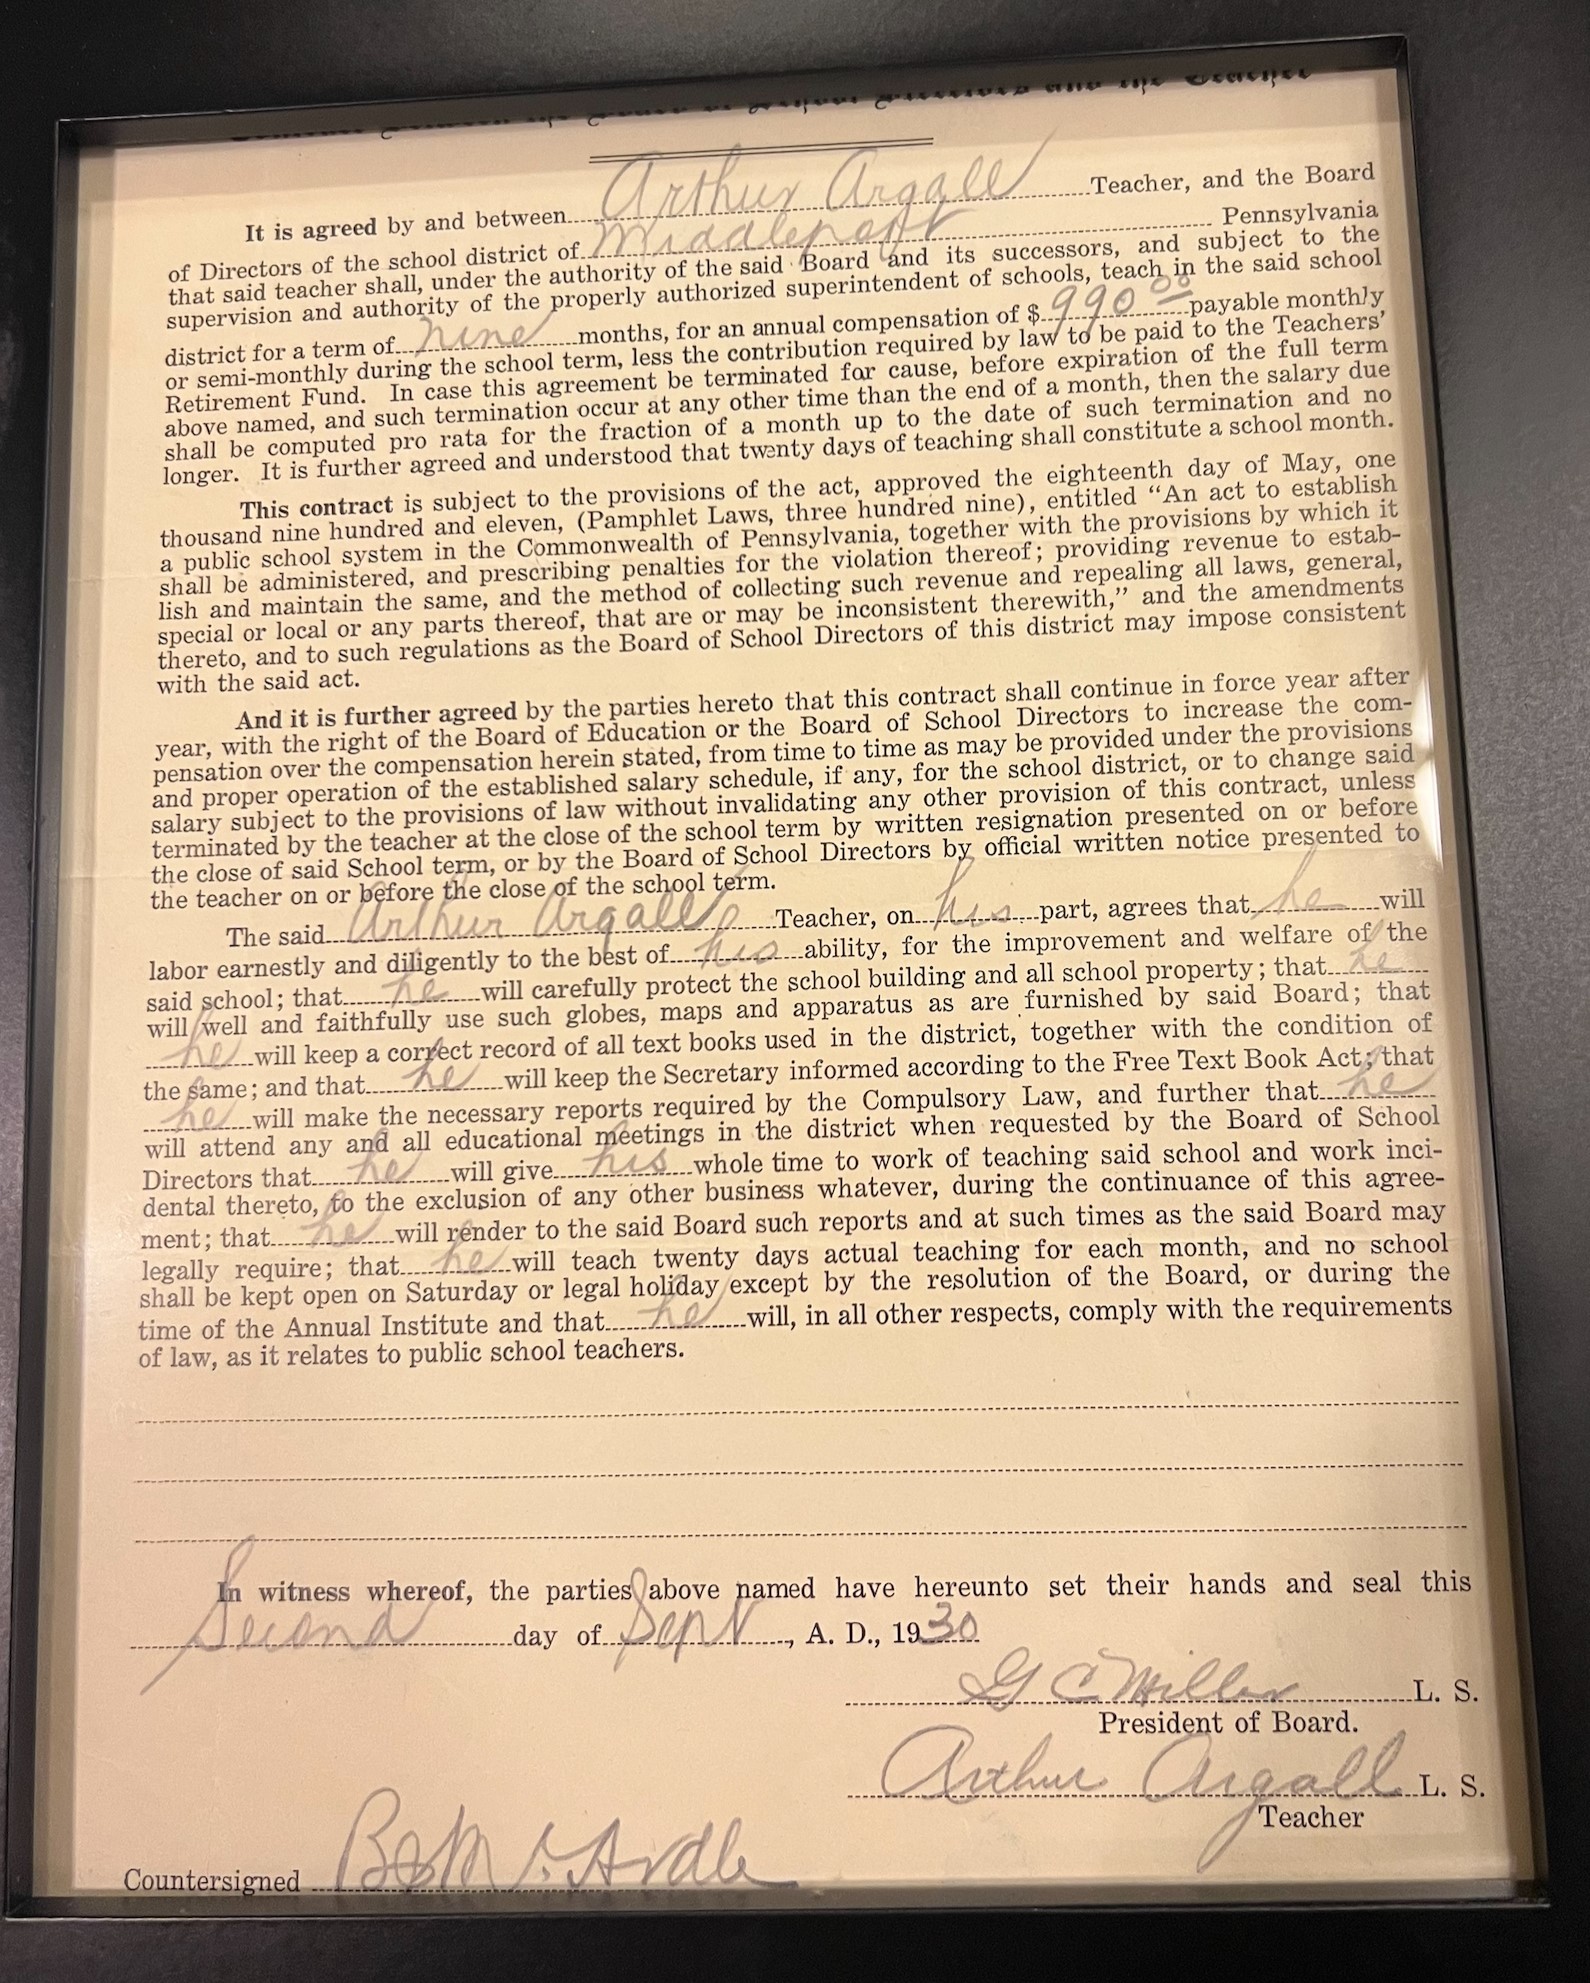 It is agreed by and between Arthur Argall Teacher, and the Board
of Directors of the school district of Middleport Pennsylvania
that said teacher shall, under the authority of the said Board and its successors, and subject to the
supervision and authority of the properly authorized superintendent of schools, teach in the said school
district for a term of nine months, for an annual compensation of $990.00 payable monthly
or semi-monthly during the school term, less the contribution required by law to be paid to the Teachers'
Retirement Fund. In case this agreement be terminated for cause, before expiration of the full term
above named, and such termination occur at any other time than the end of a month, then the salary due
shall be computed pro rata for the fraction of a month up to the date of such termination and no
longer. It is further agreed and understood that twenty days of teaching shall constitute a school month.
This contract is subject to the provisions of the act, approved the eighteenth day of May, one
thousand nine hundred and eleven, (Pamphlet Laws, three hundred nine), entitled “An act to establish
a public school system in the Commonwealth of Pennsylvania, together with the provisions by which it
shall be administered, and prescribing penalties for the violation thereof; providing revenue to estab-
lish and maintain the same, and the method of collecting such revenue and repealing all laws, general,
special or local or any parts thereof, that are or may be inconsistent therewith,” and the amendments
thereto, and to such regulations as the Board of School Directors of this district may impose consistent
with the said act.
And it is further agreed by the parties hereto that this contract shall continue in force year after
year, with the right of the Board of Education or the Board of School Directors to increase the com-
pensation over the compensation herein stated, from time to time as may be provided under the provisions
and proper operation of the established salary schedule, if any, for the school district, or to change said
salary subject to the provisions of law without invalidating any other provision of this contract, unless
terminated by the teacher at the close of the school term by written resignation presented on or before
the close of said School term, or by the Board of School Directors by official written notice presented to
the teacher on or before the close of the school term.
The said Arthur Argall Teacher, on his part, agrees that he will
labor earnestly and diligently to the best of his ability, for the improvement and welfare of the
said school; that he will carefully protect the school building and all school property; that he
will well and faithfully use such globes, maps and apparatus as are furnished by said Board; that
he will keep a correct record of all text books used in the district, together with the condition of
the same; and that he will keep the Secretary informed according to the Free Text Book Act; that
he will make the necessary reports required by the Compulsory Law, and further that he
will attend any and all educational meetings in the district when requested by the Board of School
Directors that he will give his whole time to work of teaching said school and work inci-
dental thereto, to the exclusion of any other business whatever, during the continuance of this agree-
ment; that he will render to the said Board such reports and at such times as the said Board may
legally require; that he will teach twenty days actual teaching for each month, and no school
shall be kept open on Saturday or legal holiday except by the resolution of the Board, or during the
time of the Annual Institute and that he will, in all other respects, comply with the requirements
of law, as it relates to public school teachers.
In witness whereof, the parties above named have hereunto set their hands and seal this
Second day of Sept, A. D., 1930
G C Miller L. S.
President of Board.
Arthur Argall L. S.
Teacher
Countersigned